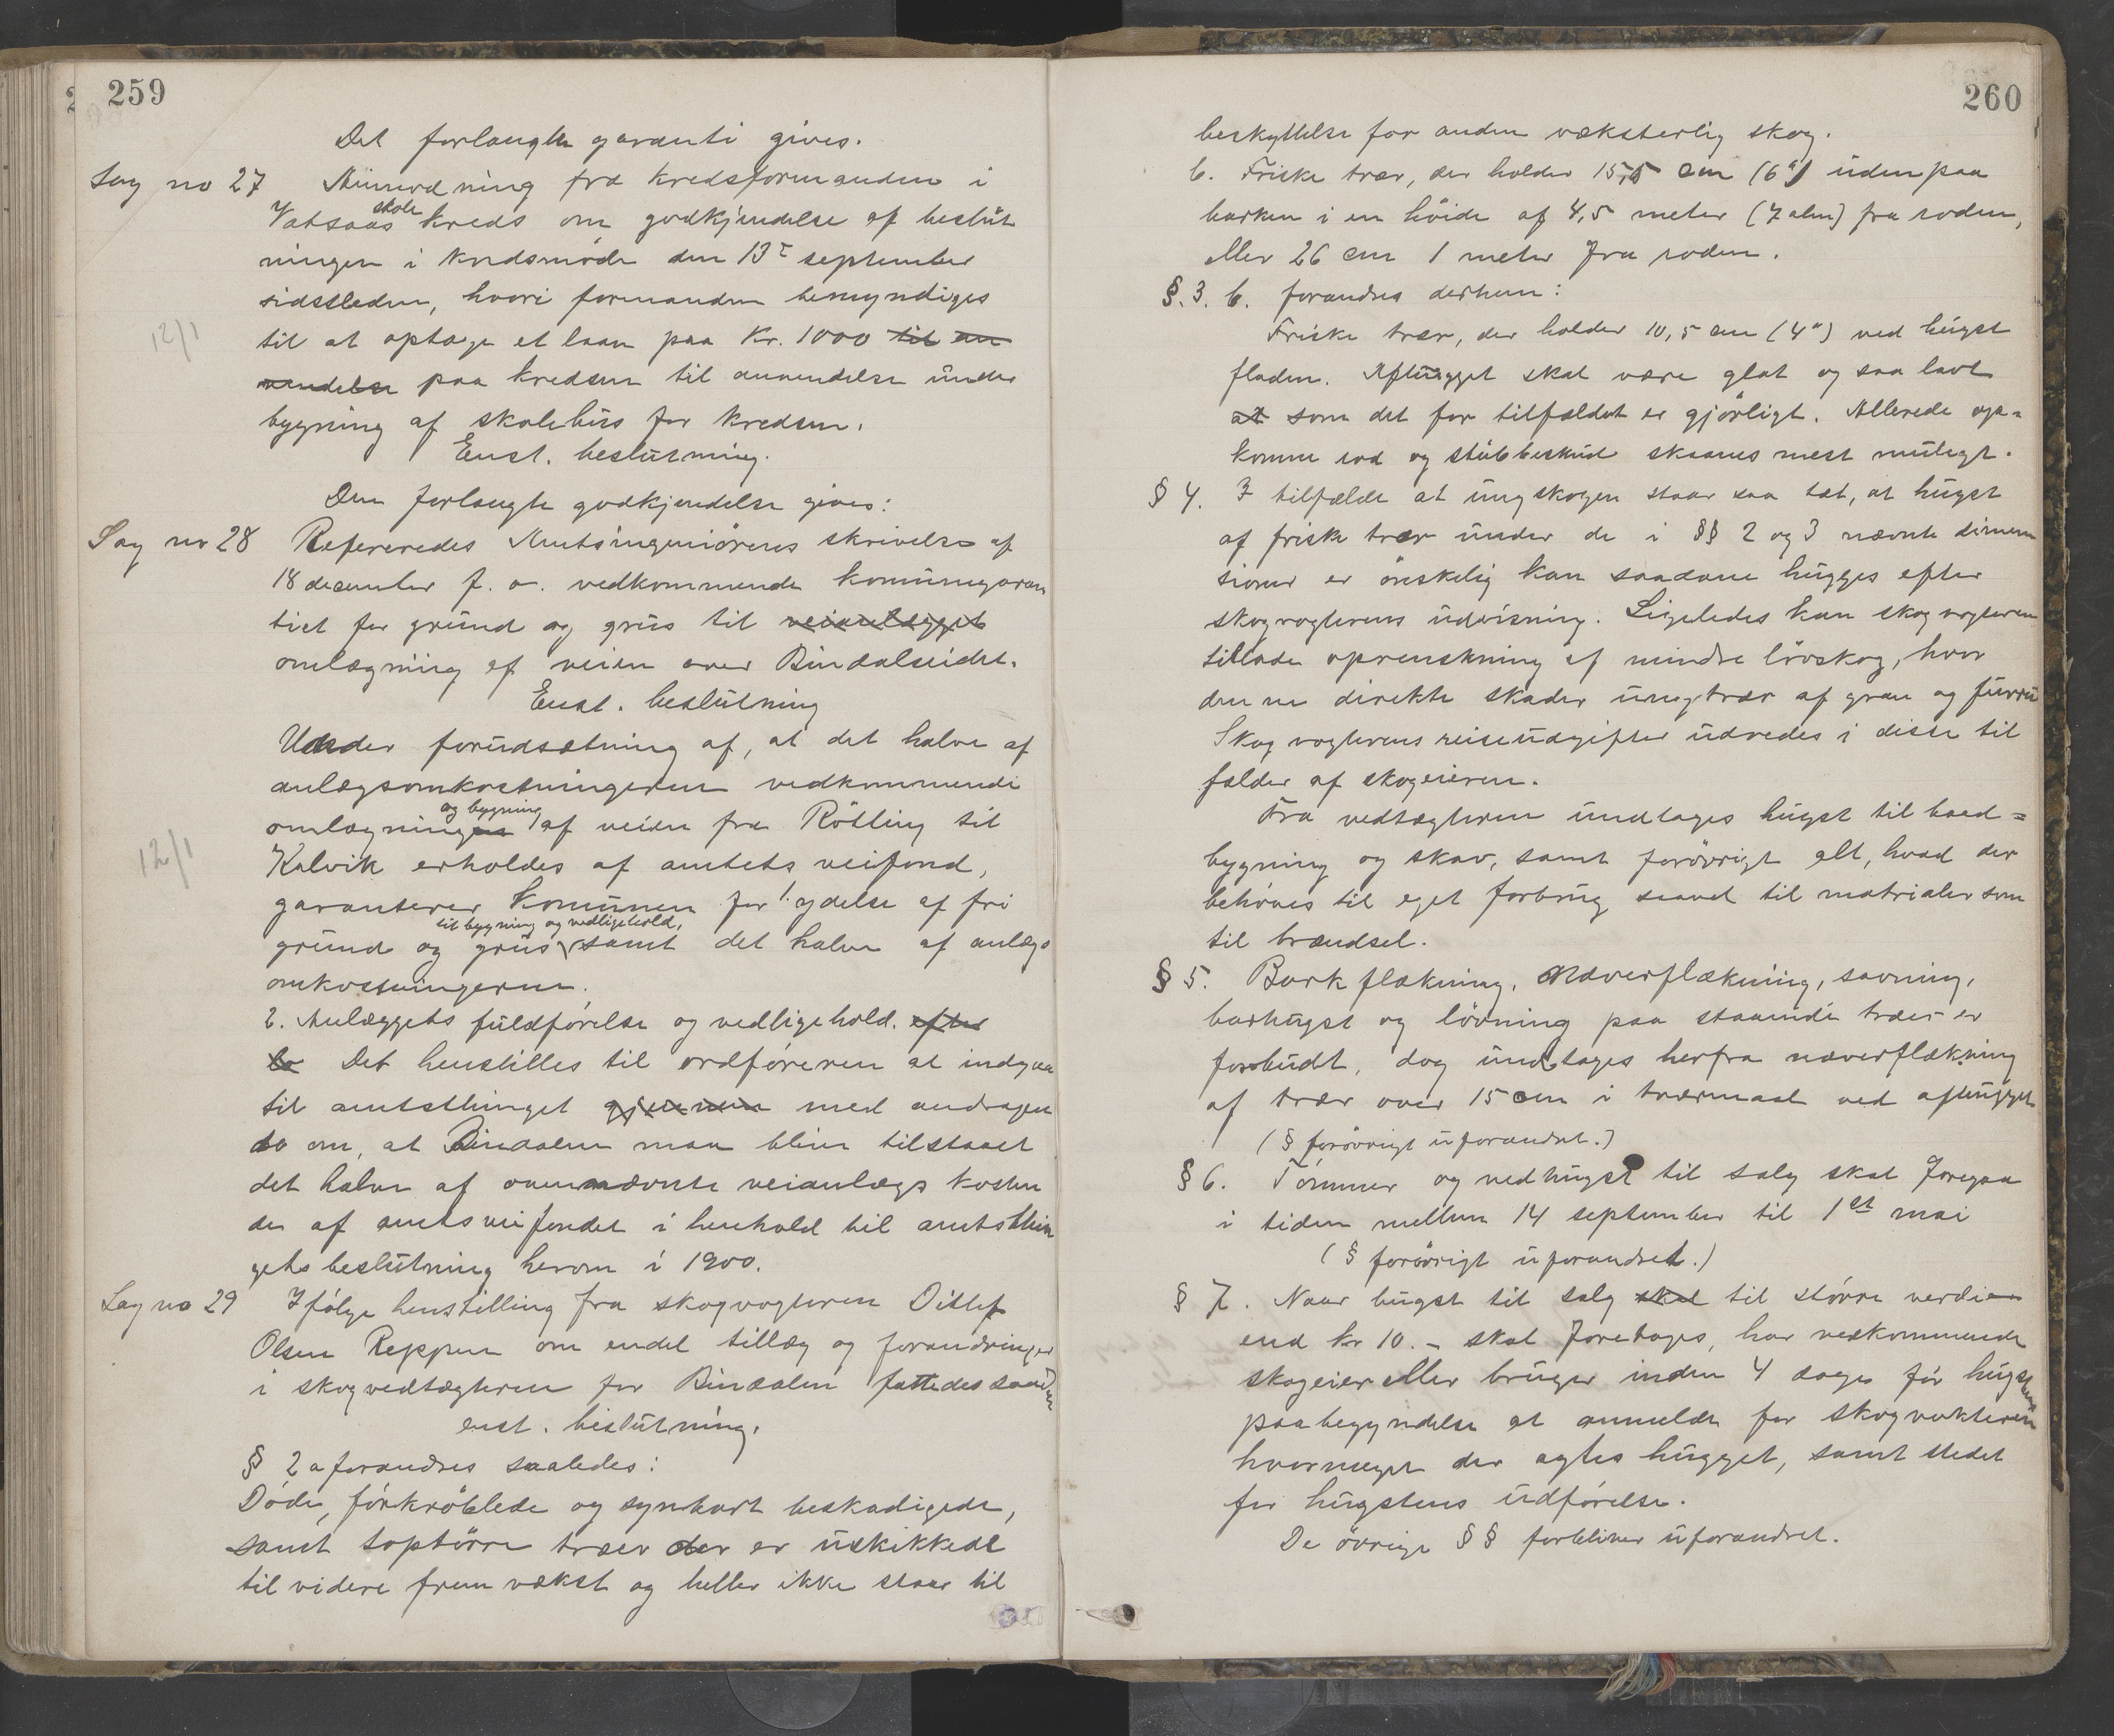 259
Det forlangte garanti gives.
Sag no 27 Anmodning fra kredsformanden i
Vatsaas skole kreds om godkjendelse af beslut
ningen i kredsmøde den 13de september
sidstleden, hvori formanden bemyndiges
12/1
til at optage et laan paa Kr. 1000 til an
vendelse paa kredsen til anvendelse under
bygning af skolehus for kredsen.
Enst. beslutning.
Den forlangte godkjendelse gives:
Sag no 28 Refereredes Amtsingeniørens skrivelse af
18 december f. a. vedkommende komunegaran
tiet for grund og grus til veianlægget
omlægning af veien over Bindalseidet.
Enst. beslutning
Under forudsætning af, at det halve af
anlægsomkostningerne vedkommende
og bygning
omlægningen af veien fra Røtling til
12/1
Kalvik erholdes af amtets veifond,
garanterer komunen for 1. ydelse af fri
til bygning og vedligehold,
grund og grus samt det halve af anlægs
omkostningerne.
2. Anlæggets fuldførelse og vedligehold. efter
lo Det henstilles til ordføreren at indgaa
til amtsthinget gjennem med andragen
de om, at Bindalen maa bliver tilstaaet
det halve af ovennævnte veianlægs kosten
de af amtsveifondet i henhold til amtsthin
gets beslutning herom i 1900.
Sag no 29 Ifølge henstilling fra skogvogteren Ditlef
Olsen Reppen om endel tillæg og forandringer
i skogvedtægterne for Bindalen fattedes saadan
enst. beslutning.
§ 2 a forandres saaledes:
Døde, forkrøblede og synbart beskadigede,
samt toptørre træer der er uskikkede
til videre fremvækst og heller ikke staar til
260
beskyttelse for anden væksterlig skog.
b. Friske trær, der holder 15,5 cm (6") udenpaa
barken i en høide af 4,5 meter (7 alen) fra roden,
eller 26 cm 1 meter fra roden.
§. 3. b. forandres derhen:
Friske trær, der holder 10,5 cm (4") ved hugst
fladen. Afhugget skal være glat og saa lavt
at som det for tilfældet er gjørligt. Allerede op=
komne rod og stubbeskud skaanes mest muligt.
§ 4. I tilfælde at ungskogen staar saa tæt, at hugst
af friske trær under de i §§ 2 og 3 nævnte dimen
sioner er ønskelig kan saadane hugges efter
skogvogterens udvisning. Ligeledes kan skogvogteren
tillade oprenskning af mindre løvskog, hvor
denne direkte skader ungtrær af gran og furru
Skogvogterens reiseudgifter udredes i disse til
fælder af skogeieren.
Fra vedtægterne undtages hugst til baad=
bygning og skav, samt forøvrigt alt, hvad der
behøves til eget forbrug saavel til matrialer som
til brændsel.
§ 5. Bark flækning, Næverflækning, savning,
barhugst og løvning paa staaende træer er
forbudt, dog undtages herfra næverflækning
af trær over 15 cm i tværmaal ved afhugget
(§ forøvrigt uforandret.)
§ 6. Tømmer og vedhugst til salg skal foregaa
i tiden mellem 14 september til 1et mai
(§ forøvrigt uforandret.)
§ 7. Naar hugst til salg skal til større verdier
end kr 10.- skal foretages, har vedkommende
skogeier eller bruger inden 4 dage før hugstens
paabegyndelse at anmelde for skogvokteren
hvormeget der agtes hugget, samt stedet
for hugstens udførelse.
De øvrige §§ forbliver uforandret.